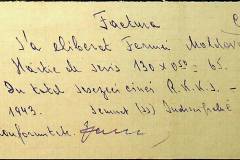 Factura
S'a eliberat Fermei Moldova
Hârtie de scris 130 x 0.50 = 65.
În total șeizeci cinci R.K.K.S. -
1943. Semnat (ss) Indescifrabil
conformitate.